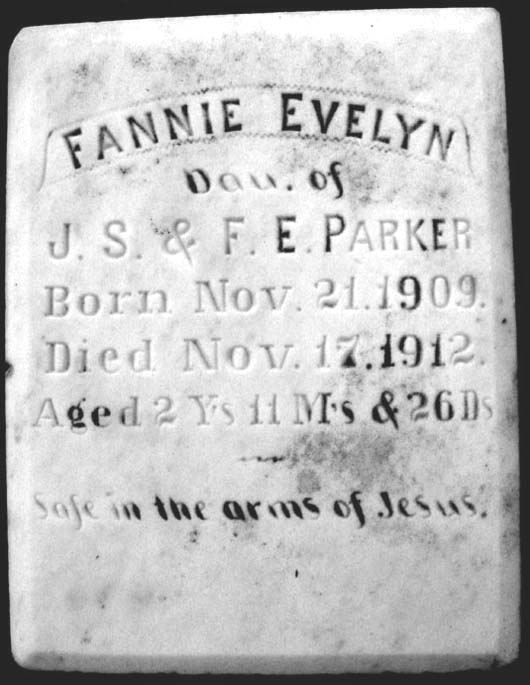 FANNIE EVELYN
Dau. of
J. S. & F. E. PARKER
Born Nov. 21. 1909.
Died Nov. 17. 1912.
Aged 2 Ys 11 M's & 26 Ds
Safe in the arms of Jesus.